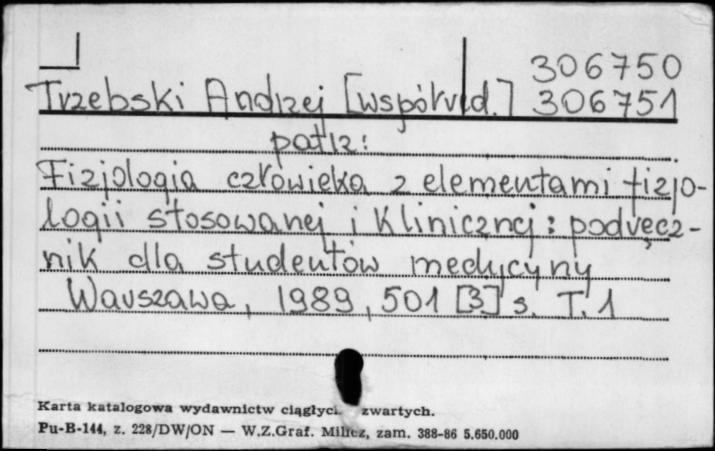 306750
Trzebski Andrzej [współred.] 306751
patrz:
Fizjologia człowieka z elementami fizjo-
logii stosowanej i klinicznej : podręcz-
nik dla studentów medycyny
Warszawa, 1989, 501 [3] s. T. 1
Karta katalogowa wydawnictw ciągłyc zwartych.
Pu-B-144, z. 228/DW/ON — W.Z.Graf. Milicz, zam. 388-86 5.650.000